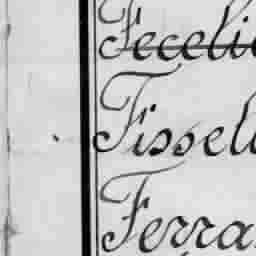 Fecelie
Fissel
Ferra